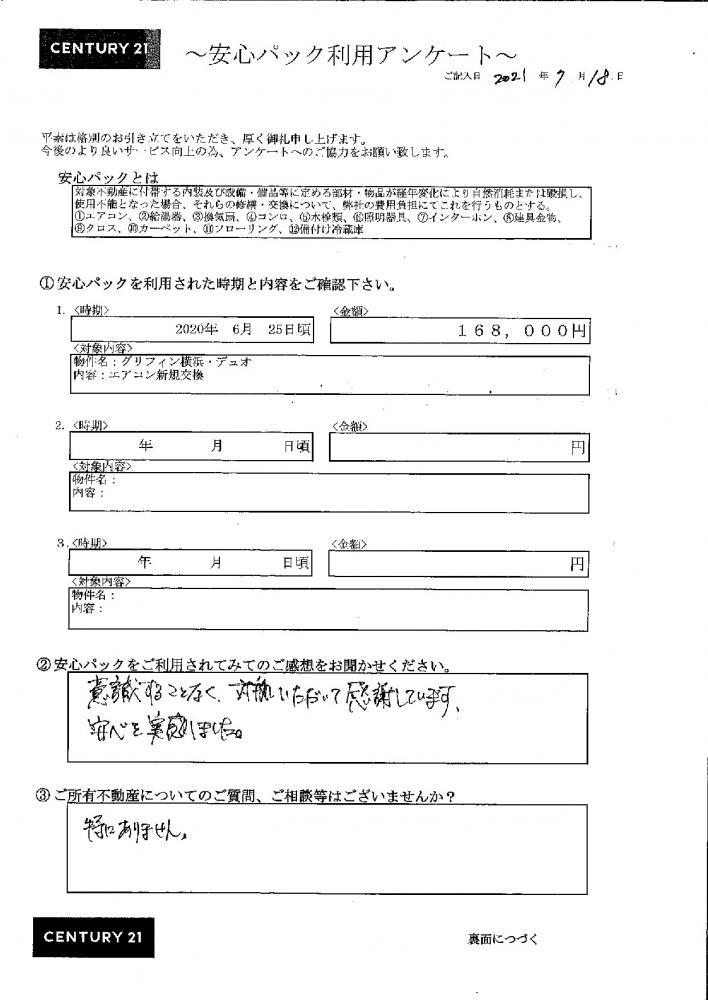 CENTURY 21
～安心パック利用アンケート～
ご記入日 2021 年 7 月 18 日
平素は格別のお引き立てをいただき、厚く御礼申し上げます。
今後のより良いサービス向上の為、アンケートへのご協力をお願い致します。
安心パックとは
対象不動産に付帯する内装及び設備・備品等に定める部材・物品が経年変化により自然消耗または毀損し、
使用不能となった場合、それらの修繕・交換について、弊社の費用負担にてこれを行うものとする。
①エアコン、②給湯器、③換気扇、④コンロ、⑤水栓類、⑥照明器具、⑦インターホン、⑧建具金物、
⑨クロス、⑩カーペット、⑪フローリング、⑫備付け冷蔵庫
①安心パックを利用された時期と内容をご確認下さい。
1. <時期> <金額>
2020年 6月 25日頃 168,000円
<対象内容>
物件名：グリフィン横浜・デュオ
内容：エアコン新規交換
2. <時期> <金額>
年 月 日頃 円
<対象内容>
物件名：
内容：
3. <時期> <金額>
年 月 日頃 円
<対象内容>
物件名：
内容：
②安心パックをご利用されてみてのご感想をお聞かせください。
意識することなく、対処いただいて感謝しています。
安心を実感しました。
③ご所有不動産についてのご質問、ご相談等はございませんか？
特にありません。
CENTURY 21
裏面につづく